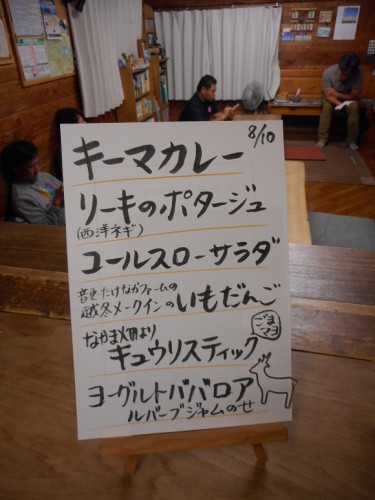 8/10
キーマカレー
リーキのポタージュ
(西洋ネギ)
コールスローサラダ
音更たけなかファームの
越冬メークインのいもだんご
なかま畑より
キュウリスティック
ごまマヨ
ヨーグルトババロア
ルバーブジャムのせ